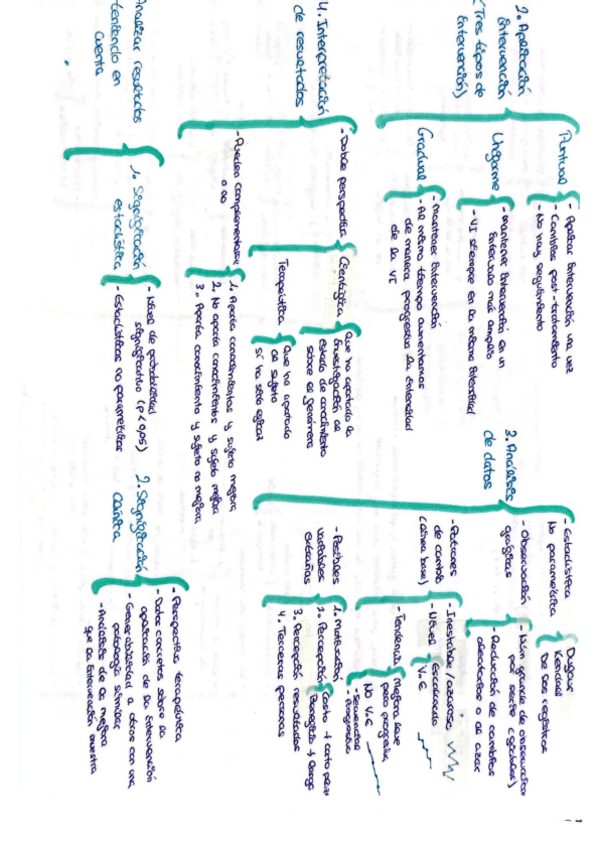 2. Aplicación
Intervención
(Tres tipos de
Intervención)
Puntual
- Aplicar Intervención una vez
- Cambios post-tratamiento
- No hay seguimiento
Uniforme
- Mantener Intervención en un
intervalo más amplio
- VI siempre en la misma intensidad
Gradual
- Mantener Intervención
- Al mismo tiempo aumentamos
de manera progresiva la intensidad
de la VI
3. Análisis
de datos
- Estadística
No paramétrica
Kendall
De dos registros
- Observación
gráficas
- Núm grande de observaciones
por serie
- Reducción de cambios
aleatorios o de azar
- Patrones
de cambio
(Línea base)
- Inestable / azarosa
- Nivel
Escalonado
V.E
- Tendencia
Mejora leve
pero progresiva
- Secuencias
- Progresivo
No V.E
- Posibles
variables
extrañas
1. Maduración
2. Percepción
Costo → corto plazo
Beneficio → largo
3. Percepción resultados
4. Terceras personas
4. Interpretación
de resultados
- Doble perspectiva
Científica
Que ha aportado la
investigación al
estado de conocimiento
sobre el fenómeno
Terapéutica
Que ha aportado
al sujeto
si ha sido eficaz
- Pueden complementarse
o no
1. Aporta conocimientos y sujeto mejora
2. No aporta conocimientos y sujeto mejora
3. Aporta conocimiento y sujeto no mejora
Analizar resultados
teniendo en
cuenta
1. Significación
estadística
- Nivel de probabilidad
significativo (p < 0,05)
- Estadísticas no paramétricas
2. Significación
Clínica
- Perspectiva terapéutica
- Datos concretos sobre la
aplicación de la intervención
- Generabilidad a otros con una
patología similar
- Análisis de la mejora
que la intervención muestra